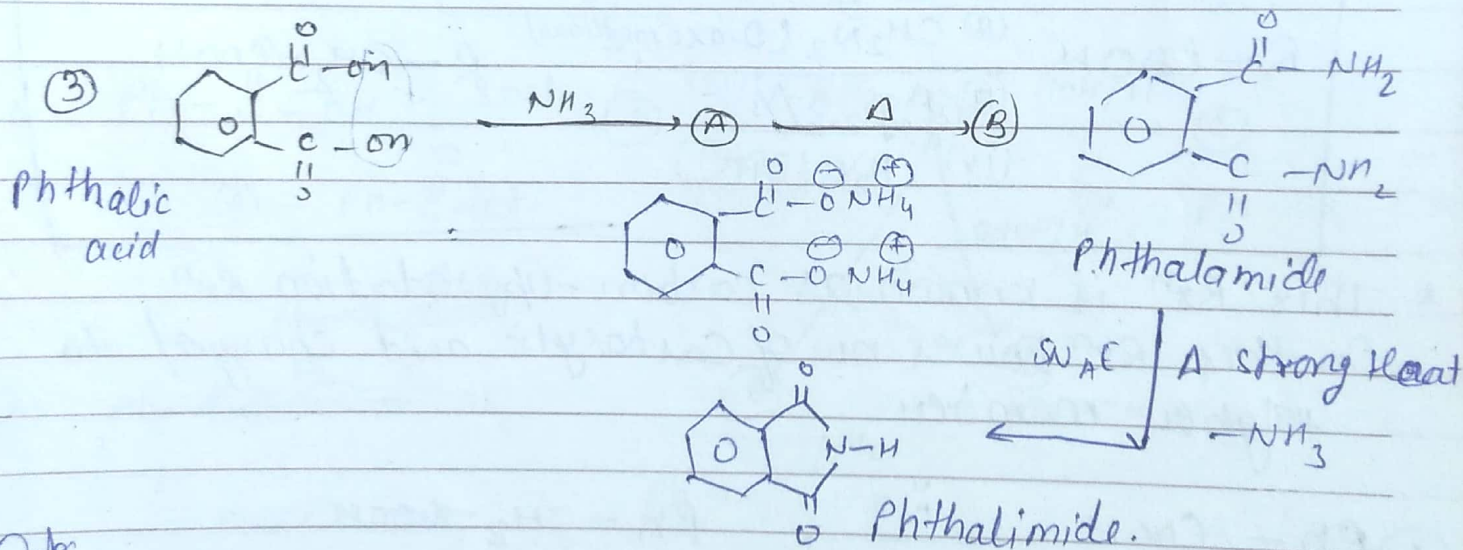 ③
O
C-OH
C-OH
O
Phthalic
acid
NH3
Ⓐ
Δ
Ⓑ
O
C-O⊖ NH4⊕
C-O⊖ NH4⊕
O
O
C-NH2
C-NH2
O
Phthalamide
SNAE
Δ strong Heat
-NH3
O
N-H
O
Phthalimide.